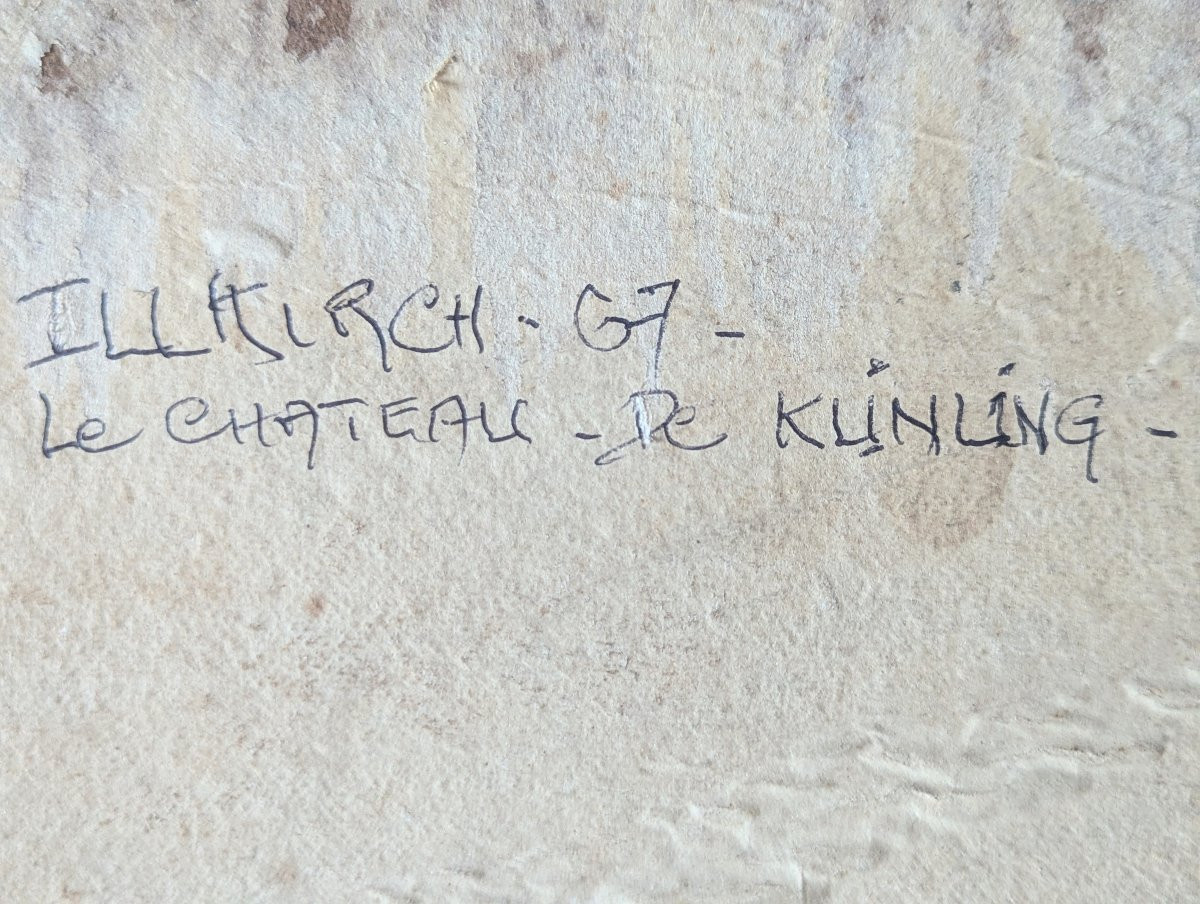 ILLKIRCH · 67 -
Le CHATEAU - De